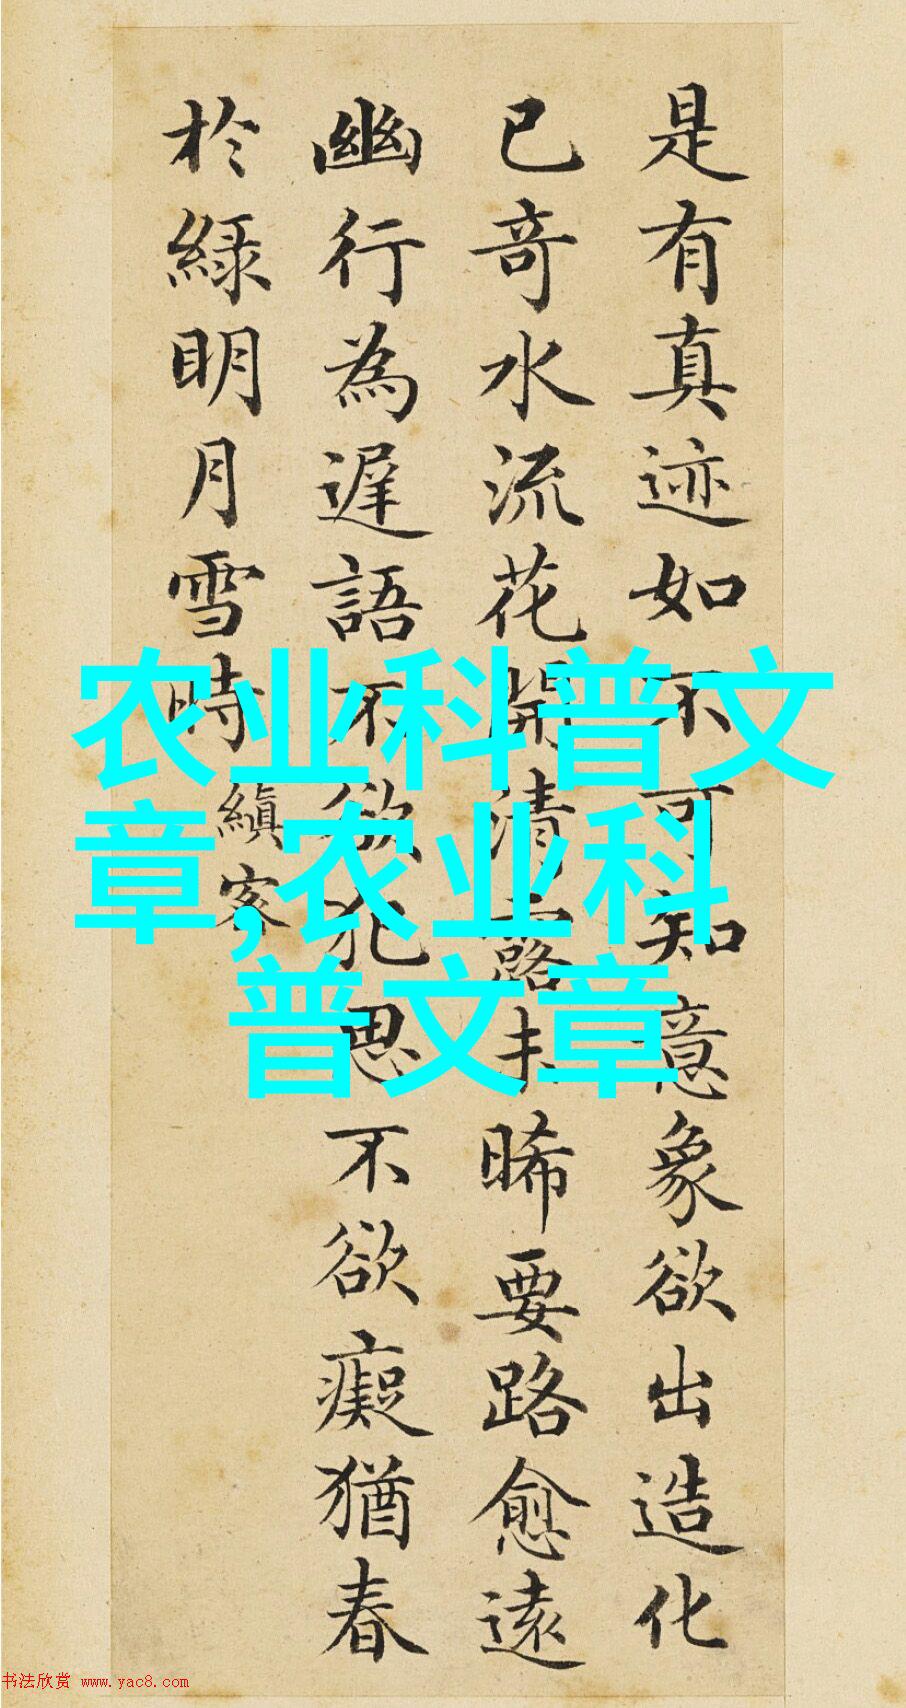 是有真迹如不可知意象欲出造化
已奇水流花開清露未晞要路愈遠
幽行為遲語不欲犯思不欲癡猶春
於綠明月雪時
縝客
农业科普文
章,农业科
普文章
书法欣赏 www.yac8.com